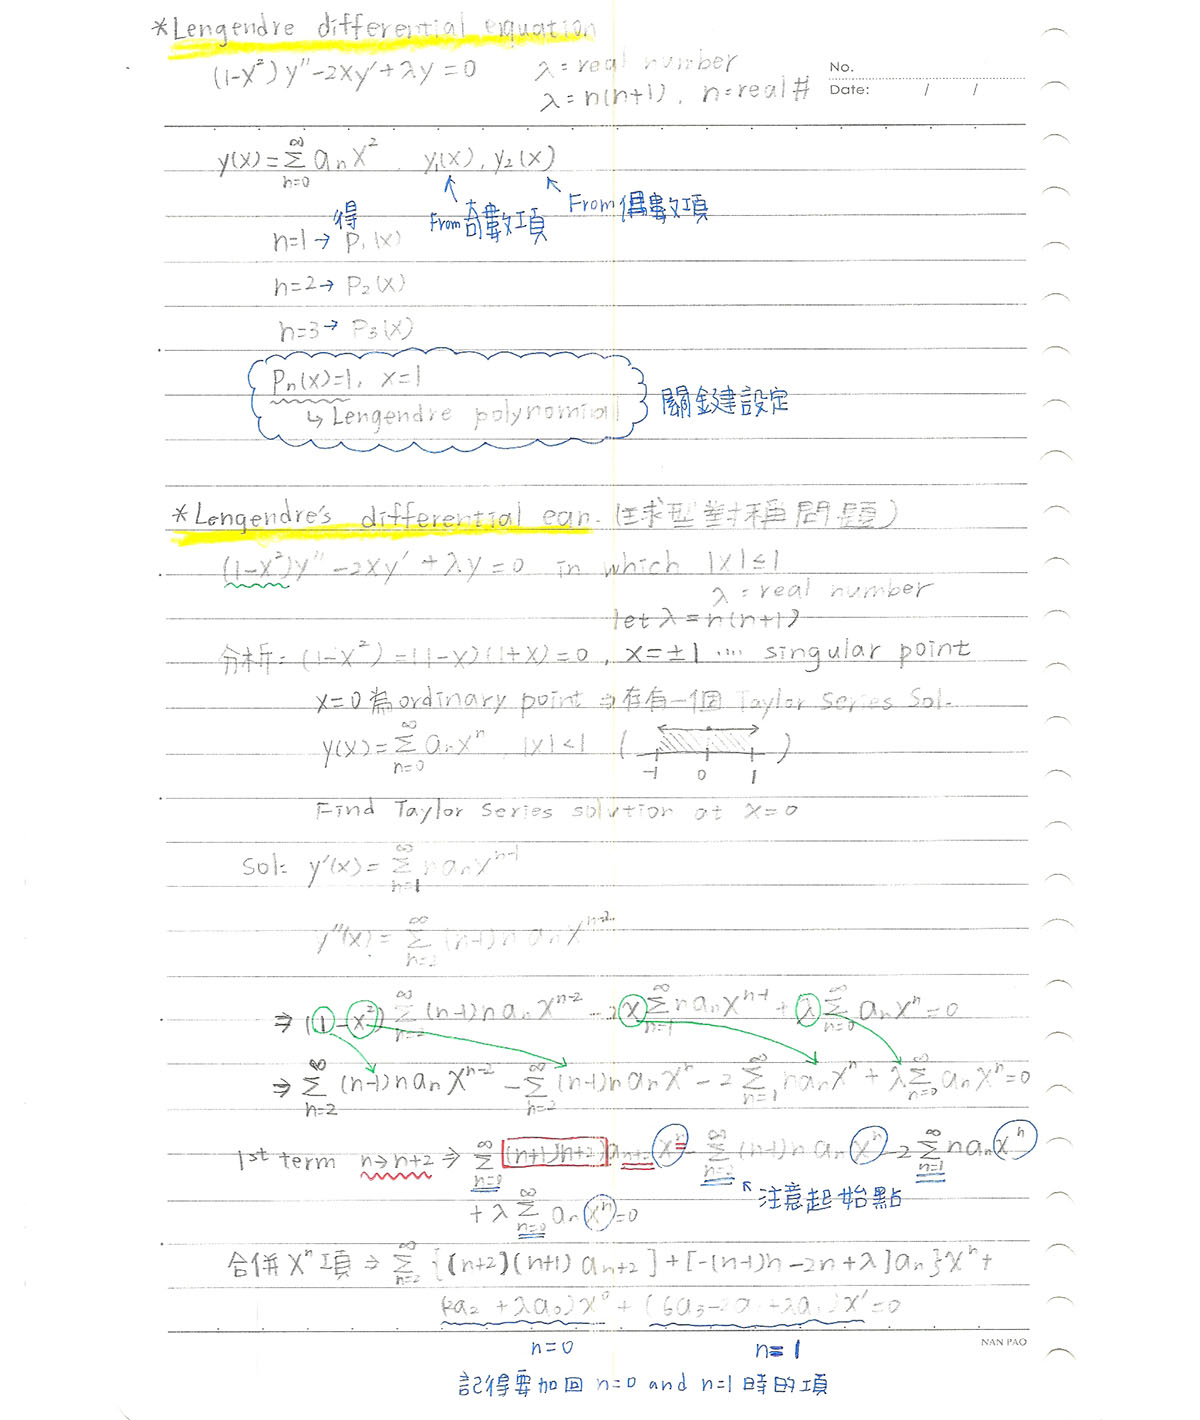 *Lengendre differential equation
(1-x²)y″-2xy′+λy=0 λ=real number
λ=n(n+1), n=real#
No.
Date: / /
y(x)=∑_{n=0}^{∞} aₙx² y₁(x), y₂(x)
From奇數項 From偶數項
得
n=1→ P₁(x)
n=2→ P₂(x)
n=3→ P₃(x)
Pₙ(x)=1, x=1
↳ Lengendre polynomial
關鍵設定
*Lengendre's differential eqn. (球型對稱問題)
(1-x²)y″-2xy′+λy=0 in which |x|≤1
λ=real number
let λ=n(n+1)
分析: (1-x²)=(1-x)(1+x)=0, x=±1 .... singular point
x=0為ordinary point ⇒存有一個Taylor Series Sol.
y(x)=∑_{n=0}^{∞} aₙxⁿ, |x|<1 ( -1 0 1 )
Find Taylor Series solution at x=0
Sol: y′(x)=∑_{n=1}^{∞} n aₙ x^{n-1}
y″(x)=∑_{n=2}^{∞} (n-1)n aₙ x^{n-2}
⇒ (1-x²)∑_{n=2}^{∞} (n-1)n aₙ x^{n-2} -2x∑_{n=1}^{∞} n aₙ x^{n-1} + λ∑_{n=0}^{∞} aₙxⁿ=0
⇒ ∑_{n=2}^{∞} (n-1)n aₙ x^{n-2} -∑_{n=2}^{∞} (n-1)n aₙ xⁿ -2∑_{n=1}^{∞} n aₙ xⁿ + λ∑_{n=0}^{∞} aₙxⁿ=0
1st term n→n+2 ⇒ ∑_{n=0}^{∞} (n+1)(n+2)a_{n+2} xⁿ -∑_{n=2}^{∞} (n-1)n aₙ xⁿ -2∑_{n=1}^{∞} n aₙ xⁿ
注意起始點
+λ∑_{n=0}^{∞} aₙxⁿ=0
合併xⁿ項 ⇒ ∑_{n=2}^{∞} {[(n+2)(n+1)a_{n+2}]+[-(n-1)n-2n+λ]aₙ}xⁿ+
(2a₂+λa₀)x⁰+(6a₃-2a₁+λa₁)x′=0
n=0 n=1
NAN PAO
記得要加回 n=0 and n=1時的項